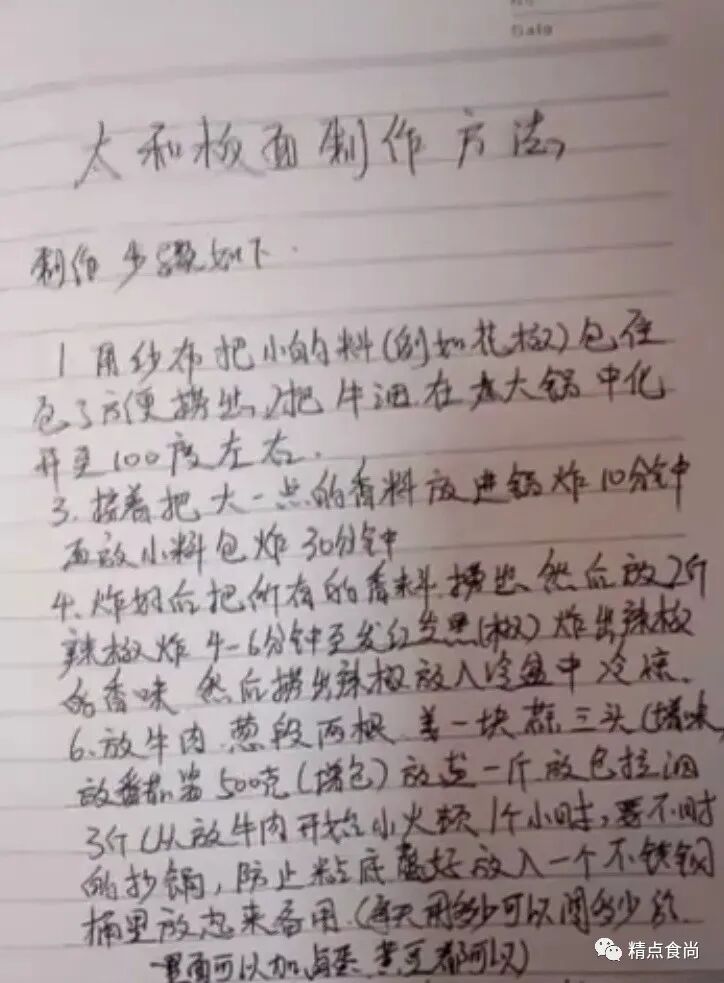 Date
太和板面制作方法
制作步骤如下.
1 用纱布把小的料(例如花椒)包住
包了方便捞出,2把牛油在大锅中化
开至100度左右.
3.接着把大一点的香料放进锅炸10分钟
再放小料包炸30分钟
4.炸好后把所有的香料捞出、然后放2斤
辣椒炸4-6分钟至发红发黑(椒)炸出辣椒
的香味 然后捞出辣椒放入冷盘中冷凉.
6.放牛肉.葱段两根 姜一块蒜三头(增味,
放番茄酱500克(增色)放盐一斤放色拉油
3斤 放牛肉开始小火顿1个小时,要不时
的抄锅,防止粘底 好放入一个不铁钢
桶里放起来备用.(每天用多少可以 多少
里面可以加卤蛋、 都可以)
精点食尚